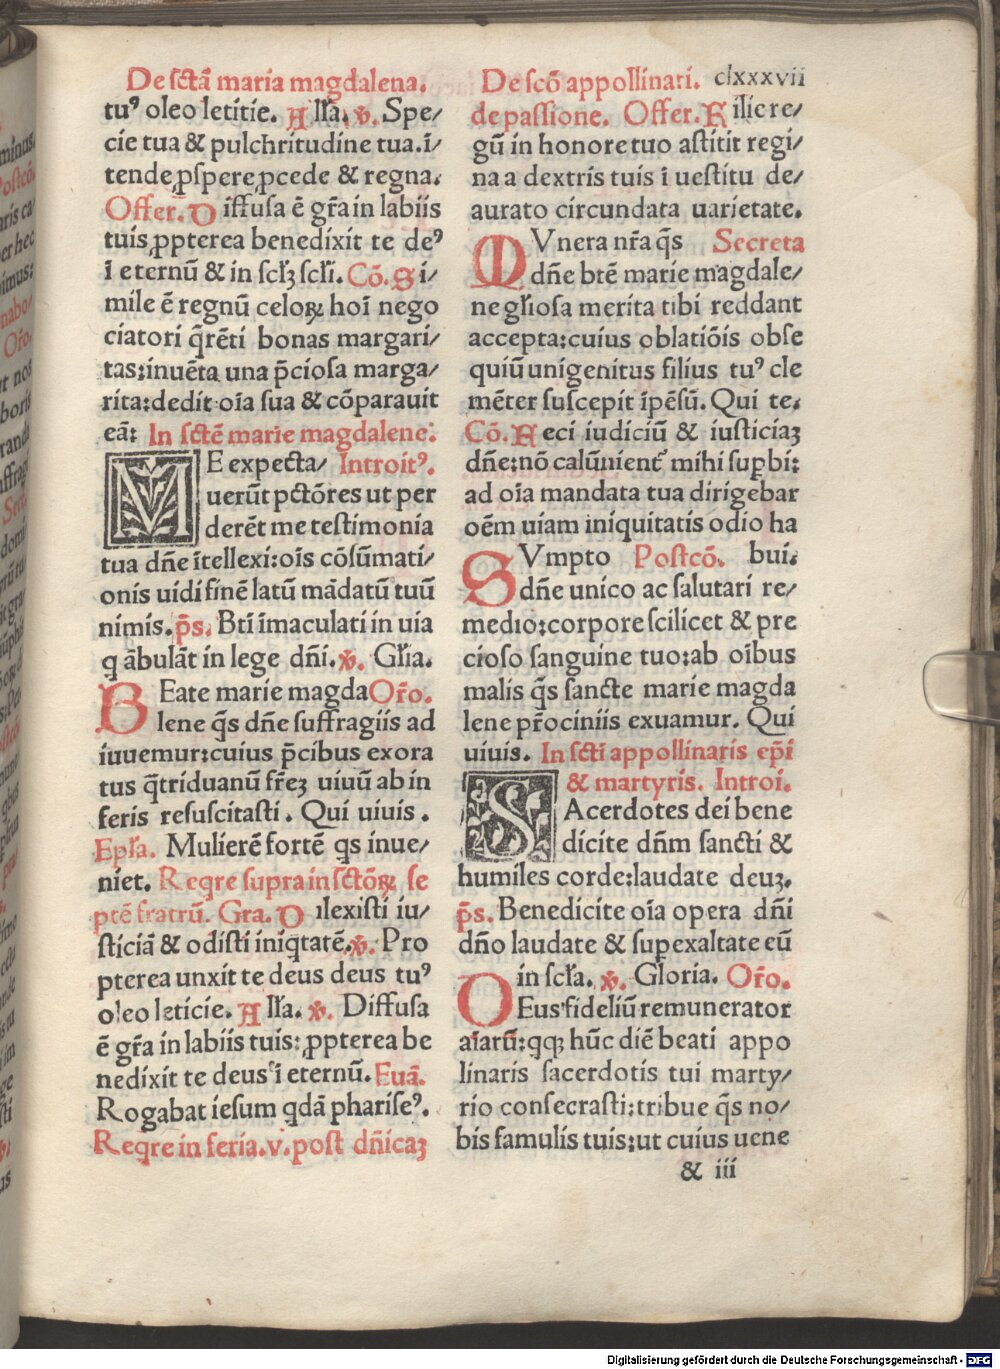 De sctā maria magdalena.
tuꝰ oleo letitie. Alľa. ꝟ. Spe/
cie tua & pulchritudine tua.ī/
tende ꝓspere ꝓcede & regna.
Offer. Diffusa ē gr̄a in labiis
tuis ꝓpterea benedixit te deꝰ
ī eternū & in scľꝫ scľi. Cō. Si/
mile ē regnū celoꝝ hoī nego
ciatori q̄rēti bonas margari/
tas:inuēta una p̄ciosa marga/
rita:dedit oīa sua & cōparauit
eā: In sctē marie magdalene:
ME expecta/ Introitꝰ.
uerūt pctōres ut per
derēt me testimonia
tua dn̄e ītellexi:oīs cōsūmati/
onis uidi finē latū mādatū tuū
nimis. p̄s. Bti īmaculati in uia
q ābulāt in lege dn̄i. ꝟ. Gľia.
BEate marie magda Or̄o.
lene q̄s dn̄e suffragiis ad
iuuemur:cuius p̄cibus exora
tus q̄triduanū fr̄eꝫ uiuū ab in
feris resuscitasti. Qui uiuis.
Epľa. Mulierē fortē qs inue/
niet. Reqre supra in sctōꝝ se
ptē fratrū. Gra. Dilexisti iu/
sticiā & odisti iniqtatē. ꝟ. Pro
pterea unxit te deus deus tuꝰ
oleo leticie. Alľa. ꝟ. Diffusa
ē gr̄a in labiis tuis: ꝓpterea be
nedixit te deus ī eternū. Euā.
Rogabat iesum qdā phariseꝰ.
Reqre in feria.v.post dn̄icaꝫ
De scō appollinari. clxxxvii
de passione. Offer. Filie re/
gū in honore tuo astitit regi/
na a dextris tuis ī uestitu de/
aurato circundata uarietate.
MVnera nr̄a q̄s Secreta
dn̄e btē marie magdale/
ne gľiosa merita tibi reddant
accepta:cuius oblatiōis obse
quiū unigenitus filius tuꝰ cle
mēter suscepit īpēsū. Qui te.
Cō. Feci iudiciū & iusticiaꝫ
dn̄e:nō calūnient̄ mihi supbi:
ad oīa mandata tua dirigebar
oēm uiam iniquitatis odio ha
SVmpto Postcō. bui.
dn̄e unico ac salutari re/
medio:corpore scilicet & pre
cioso sanguine tuo:ab oībus
malis q̄s sancte marie magda
lene pr̄ociniis exuamur. Qui
uiuis. In scti appollinaris ep̄i
& martyris. Introi.
SAcerdotes dei bene
dicite dn̄m sancti &
humiles corde:laudate deuꝫ.
p̄s. Benedicite oīa opera dn̄i
dn̄o laudate & supexaltate eū
in scľa. ꝟ. Gloria. Or̄o.
DEus fideliū remunerator
aīarū:qqꝫ hūc diē beati appo
linaris sacerdotis tui marty/
rio consecrasti:tribue q̄s no/
bis famulis tuis:ut cuius uene
& iii
Digitalisierung gefördert durch die Deutsche Forschungsgemeinschaft - DFG